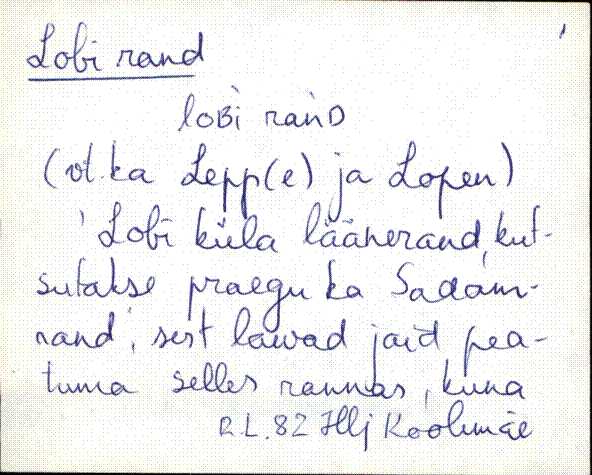 Lobi rand
loʙì ran̆ᴅ
(vt. ka Lepp(e) ja Lopen)
' Lobi küla läänerand, kut-
sutakse praegu ka Sadam-
rand', sest laevad jäid pea-
tuma selles rannas, kuna
R.L. 82 Hlj Koolimäe